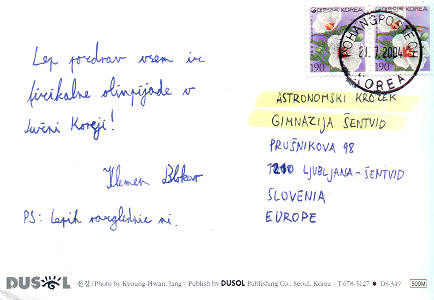 Lep pozdrav vsem iz
fizikalne olimpijade v
Južni Koreji!
Klemen Blokar
PS: Lepih razglednic ni.
대한민국 KOREA
190
대한민국 KOREA
190
POHANGPOSTECH
21.7.2004
KOREA
ASTRONOMSKI KROŽEK
GIMNAZIJA ŠENTVID
PRUŠNIKOVA 98
1210 LJUBLJANA-ŠENTVID
SLOVENIA
EUROPE
DUSOL
/Photo by Kyoung-Hwan, Jang / Publish by DUSOL Publishing Co., Seoul, Korea / T.678-5127 ● DS-349
500M